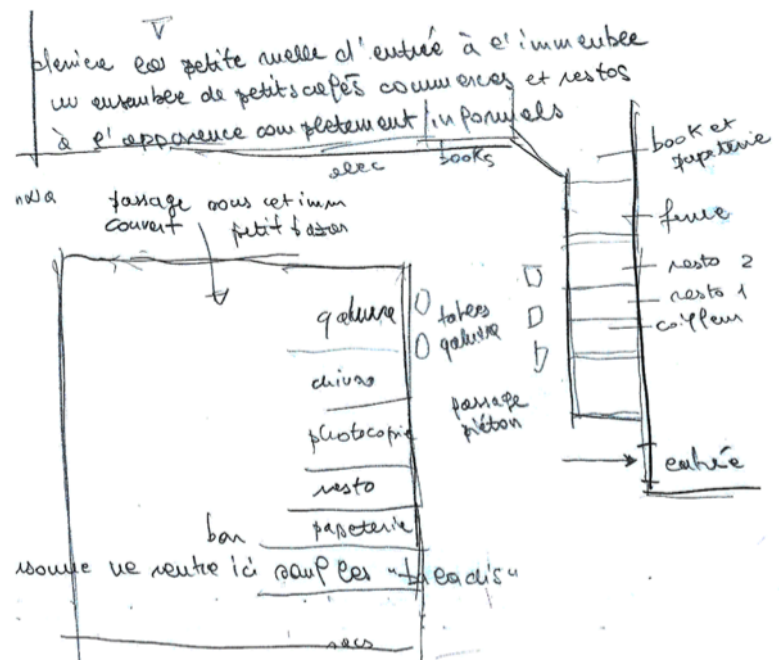 derrière la petite ruelle d'entrée à l'immeuble
un ensemble de petits cafés commerces et restos
à l'apparence complètement informels
elec books
book et
papeterie
ferme
resto 2
resto 1
coiffeur
entrée
passage sous cet imm
couvert petit bazar
galerie
tables
galerie
divers
photocopie
passage
piéton
resto
bar papeterie
ne rentre ici sauf les
sacs